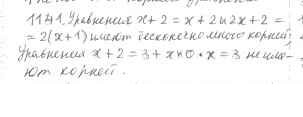 1141. Уравнения x+2 = x+2 и 2x+2 =
= 2(x+1) имеют бесконечно много корней.
Уравнения x+2 = 3+x и 0•x = 3 не име-
ют корней.